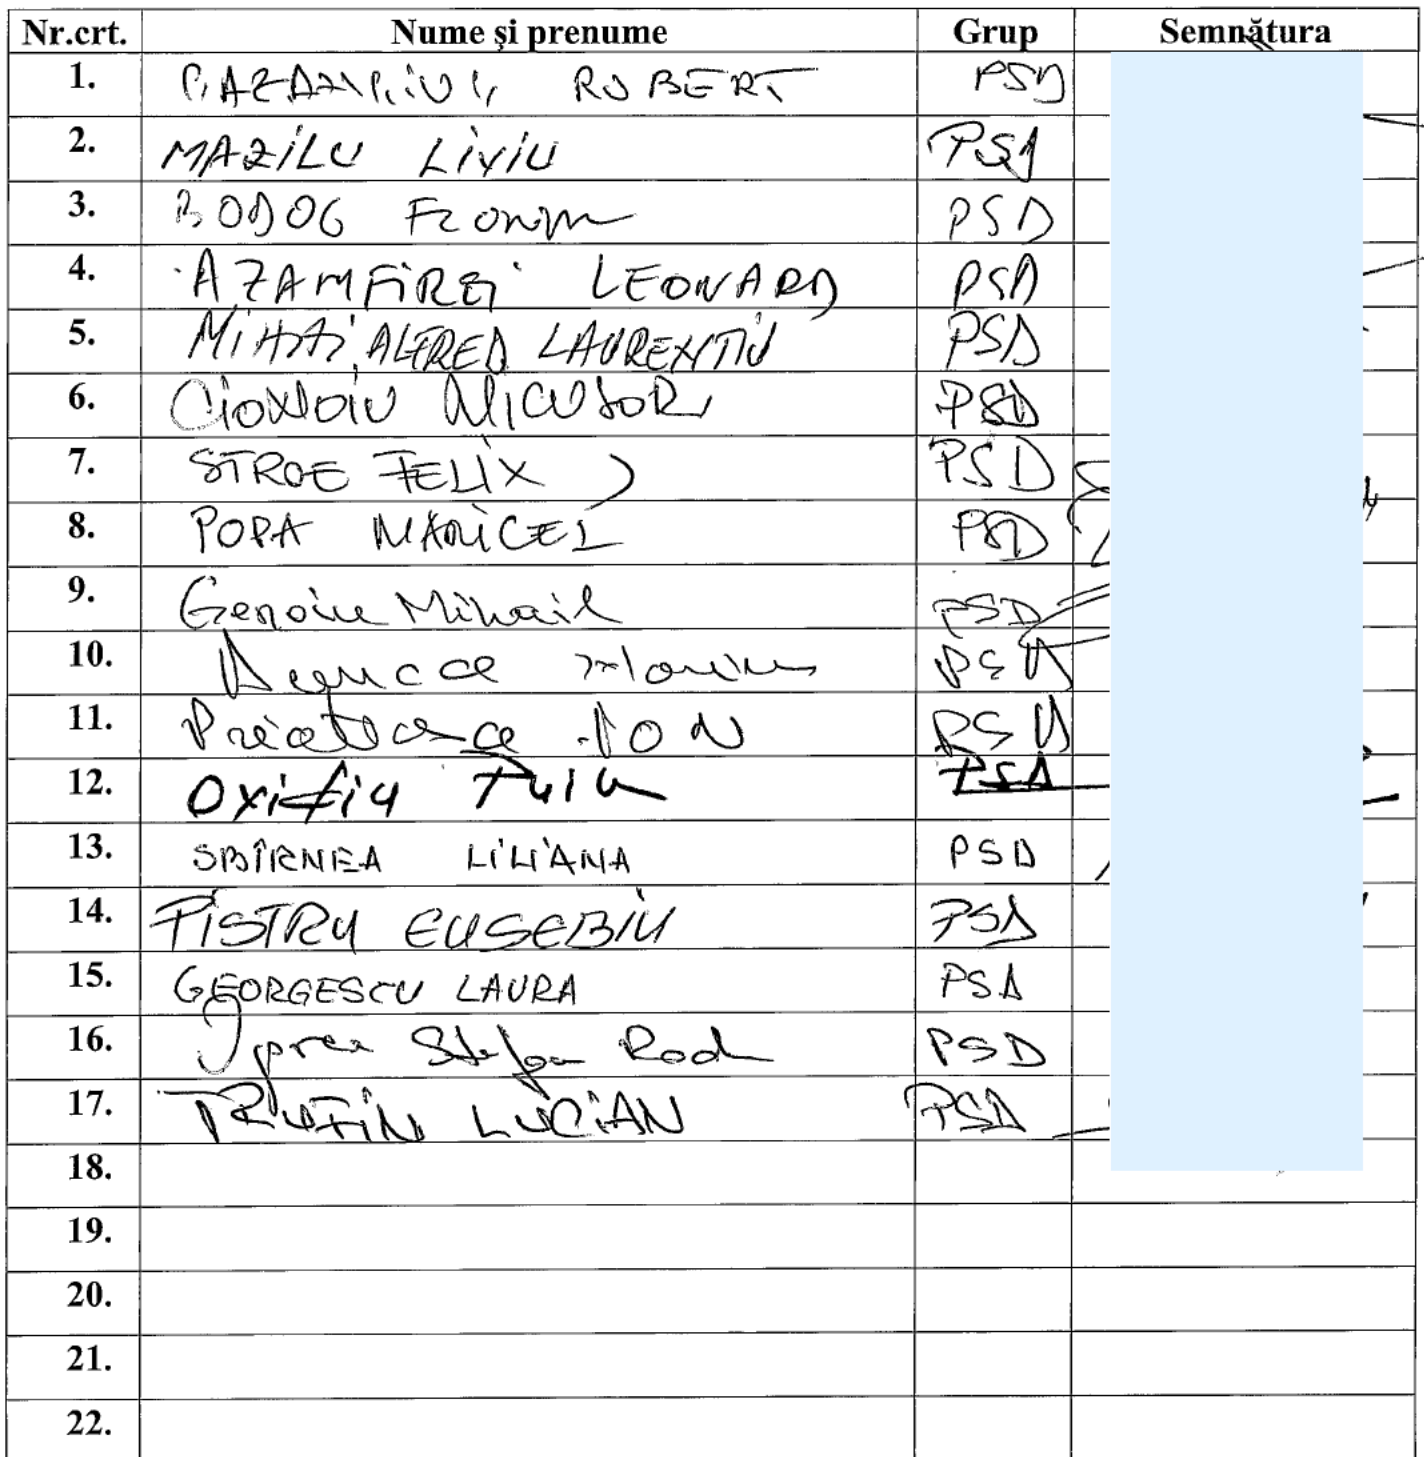 Nr.crt. Nume şi prenume Grup Semnătura
1. ROBERT PSD
2. MAZILU LiViU PSD
3. BODOG FLORIAN PSD
4. AZAMFIREI LEONARD PSD
5. MIHAI ALFRED LAURENTIU PSD
6. CIONOIU NICUSOR PSD
7. STROE FELIX PSD
8. POPA MARICEL PSD
9. Genoiu Mihail PSD
10. PSD
11. ION PSD
12. PSD
13. SBÎRNEA LILIANA PSD
14. PISTRU EUSEBIU PSD
15. GEORGESCU LAURA PSD
16. Stefan Radu PSD
17. TRUFIN LUCIAN PSD
18.
19.
20.
21.
22.